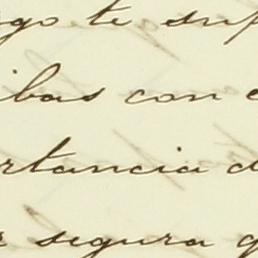 go te sup
ibas con e
rtancia d
r segura q